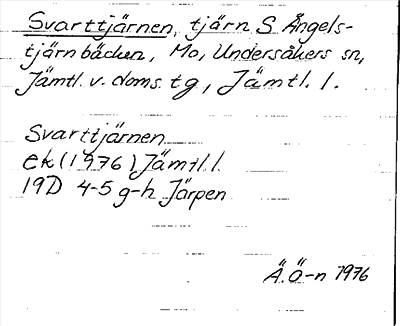 Svarttjärnen, tjärn S Ångels-
tjärnbäcken, Mo, Undersåkers sn,
Jämtl. v. doms. tg, Jämtl. l.
Svarttjärnen
ek (1976) Jämtl. l.
19D 4-5 g-h Järpen
Ä. Ö-n 1976